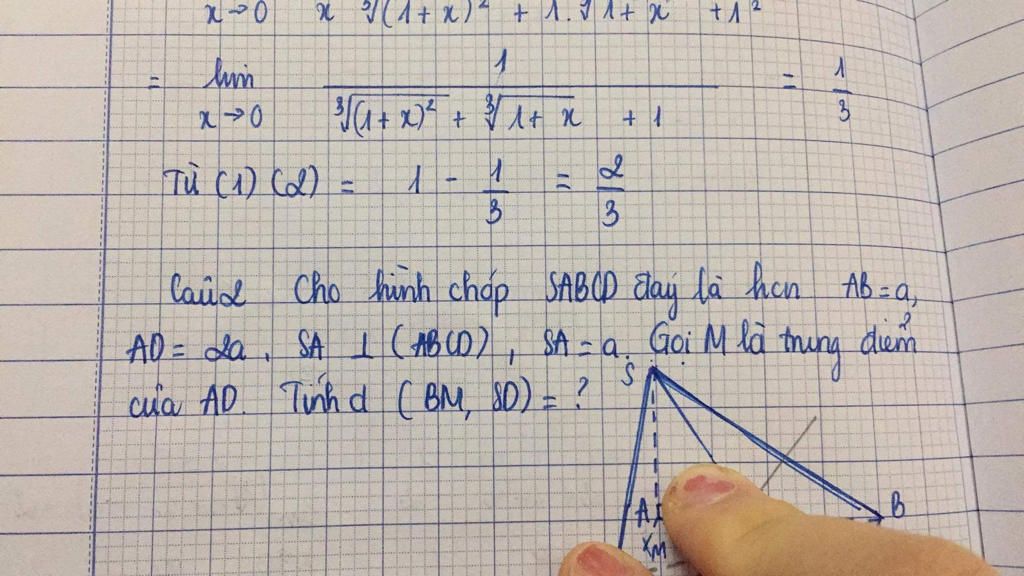 x→0 x ∛(1+x)² + 1.∛1+x +1²
= lim 1 / (∛(1+x)² + ∛1+x + 1) = 1/3
x→0
Từ (1) (2) = 1 - 1/3 = 2/3
Câu2 Cho hình chóp SABCD đáy là hcn AB = a,
AD = 2a, SA ⊥ (ABCD), SA = a. Gọi M là trung điểm
của AD. Tính d (BM, SD) = ?
S
A
B
M